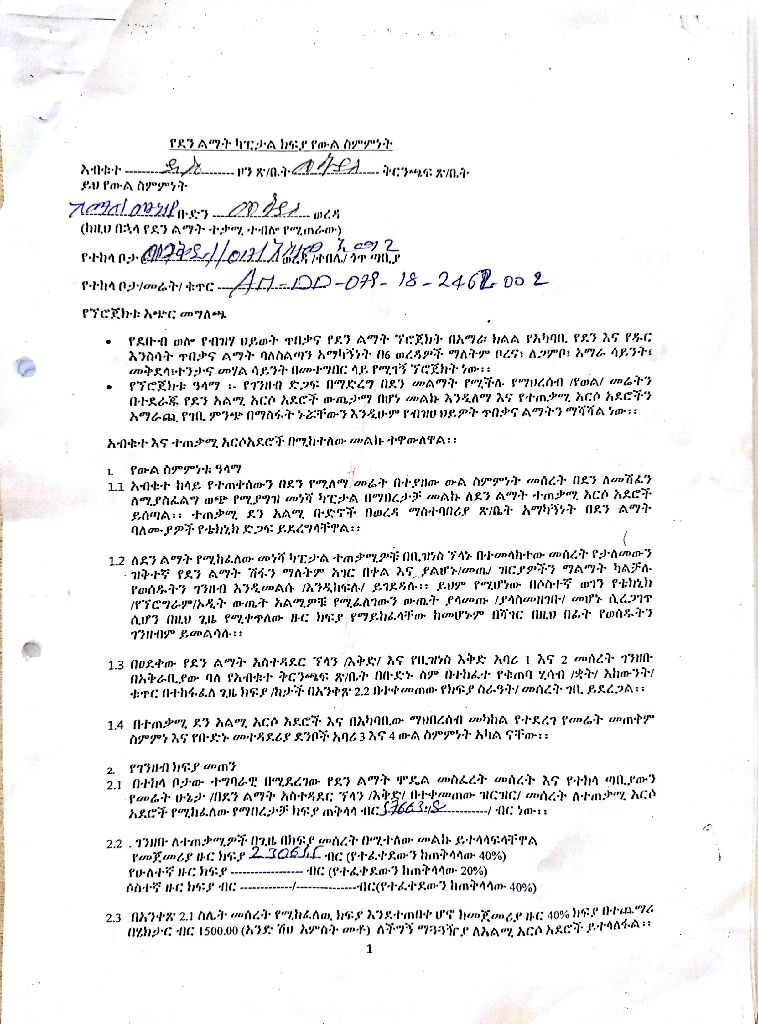 የደን ልማት ካፒታል ክፍያ የውል ስምምነት
አብቁተ ------------------- ዞን ጽ/ቤት ------------------- ቅርንጫፍ ጽ/ቤት
ይህ የውል ስምምነት
ቡድን ------------------- ወረዳ
(ከዚህ በኋላ የደን ልማት ተቃሚ ተብሎ የሚጠራው)
የተከላ ቦታ ወረዳ /ቀበሌ/ ጎጥ ጣቢያ
የተከላ ቦታ/መሬት/ ቁጥር AM-DD-079-18-2462 002
የፕሮጀክቱ አጭር መግለጫ
• የደቡብ ወሎ የብዝሃ ህይወት ጥበቃና የደን ልማት ፕሮጀክት በአማራ ክልል የአካባቢ የደን እና የዱር
እንስሳት ጥበቃና ልማት ባለስልጣን አማካኝነት በ6 ወረዳዎች ማለትም ቦረና፣ ለጋምቦ፣ አማራ ሳይንት፣
መቅደላ፣ተንታና መሃል ሳይንት በመተግበር ላይ የሚገኝ ፕሮጀክት ነው፡፡
• የፕሮጀክቱ ዓላማ ፡- የገንዘብ ድጋፍ በማድረግ በደን መልማት የሚችሉ የማህረሰብ /የወል/ መሬትን
በተደራጁ የደን አልሚ አርሶ አደሮች ውጤታማ በሆነ መልኩ እንዲለማ እና የተጠቃሚ አርሶ አደሮችን
አማራጨ የገቢ ምንጭ በማስፋት ኑሯቸውን እንዲሁም የብዝሀ ህይዎት ጥበቃና ልማትን ማሻሻል ነው፡፡
አብቁተ እና ተጠቃሚ አርሶአደሮች በሚከተለው መልኩ ተዋውለዋል፡፡
1. የውል ስምምነቱ ዓላማ
1.1 አብቁተ ከላይ የተጠቀሰውን በደን የሚለማ መሬት በተያዘው ውል ስምምነት መሰረት በደን ለመሸፈን
ለሚያስፈልግ ወጭ የሚያግዝ መነሻ ካፒታል በማበረታቻ መልኩ ለደን ልማት ተጠቃሚ አርሶ አደሮች
ይሰጣል፡፡ ተጠቃሚ ደን አልሚ ቡድኖች በወረዳ ማስተባበሪያ ጽ/ቤት አማካኝነት በደን ልማት
ባለሙያዎች የቴክኒክ ድጋፍ ይደረግላቸዋል፡፡
1.2 ለደን ልማት የሚከፈለው መነሻ ካፒታል ተጠቃሚዎቹ በቢዝነስ ፕላኑ በተመላከተው መሰረት የታለመውን
ዝቅተኛ የደን ልማት ሽፋን ማለትም አገር በቀል እና ያልሆኑ/መጤ/ ዝርያዎችን ማልማት ካልቻሉ
የወሰዱትን ገንዘብ እንዲመልሱ /እንዲከፍሉ/ ይገደዳሉ፡፡ ይህም የሚሆነው በሶስተኛ ወገን የቴክኒክ
/የፕሮግራም/ኦዲት ውጤት አልሚዎቹ የሚፈለገውን ውጤት ያላመጡ /ያላስመዘገቡ/ መሆኑ ሲረጋገጥ
ሲሆን በዚህ ጊዜ የሚቀጥለው ዙር ክፍያ የማይከፈላቸው ከመሆኑም በሻገር በዚህ በፊት የወሰዱትን
ገንዘብም ይመልሳሉ፡፡
1.3 በፀደቀው የደን ልማት አስተዳደር ፕላን /እቅድ/ እና የቢዝነስ እቅድ አባሪ 1 እና 2 መሰረት ገንዘቡ
በአቅራቢያው ባለ የአብቁተ ቅርንጫፍ ጽ/ቤት በቡድኑ ስም በተከፈተ የቁጠባ ሂሳብ /ቋት/ አከውንት/
ቁጥር በተከፋፈለ ጊዜ ክፍያ /ከታች በአንቀጽ 2.2 በተቀመጠው የክፍያ ስራዓት/ መሰረት ገቢ ይደረጋል፡፡
1.4 በተጠቃሚ ደን አልሚ አርሶ አደሮች እና በአካባቢው ማህበረሰብ መካከል የተደረገ የመሬት መጠቀም
ስምምነ እና የቡድኑ መተዳደሪያ ደንቦች አባሪ 3 እና 4 ውል ስምምነት አካል ናቸው፡፡
2. የገንዘብ ክፍያ መጠን
2.1 በተከላ ቦታው ተግባራዊ በሚደረገው የደን ልማት ሞዴል መስፈረት መሰረት እና የተከላ ጣቢያውን
የመሬት ሁኔታ /በደን ልማት አስተዳደር ፕላን /እቅድ/ በተቀመጠው ዝርዝር/ መሰረት ለተጠቃሚ አርሶ
አደሮች የሚከፈለው የማበረታቻ ክፍያ ጠቅላላ ብር ------------/ ብር ነው፡፡
2.2 . ገንዘቡ ለተጠቃሚዎች በጊዜ በክፍያ መሰረት በሚተለው መልኩ ይተላለፍላቸዋል
የመጀመሪያ ዙር ክፍያ ብር (የተፈቀደውን ከጠቅላላው 40%)
የሁለተኛ ዙር ክፍያ ------------------ ብር (የተፈቀደውን ከጠቅላላው 20%)
ሶስተኛ ዙር ክፍያ ብር ------------/---------------ብር(የተፈቀደውን ከጠቅላላው 40%)
2.3 በአንቀጽ 2.1 ስሌት መሰረት የሚከፈለዉ ክፍያ እንደተጠበቀ ሆኖ ከመጀመሪያ ዙር 40% ክፍያ በተጨማሪ
በሄክታር ብር 1500.00 (አንድ ሽህ አምስት መቶ) ለችግኝ ማጓጓዥያ ለአልሚ አርሶ አደሮች ይተላለፋል፡፡
1